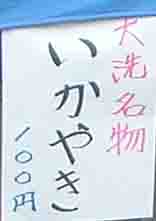 大洗名物
いかやき
100円